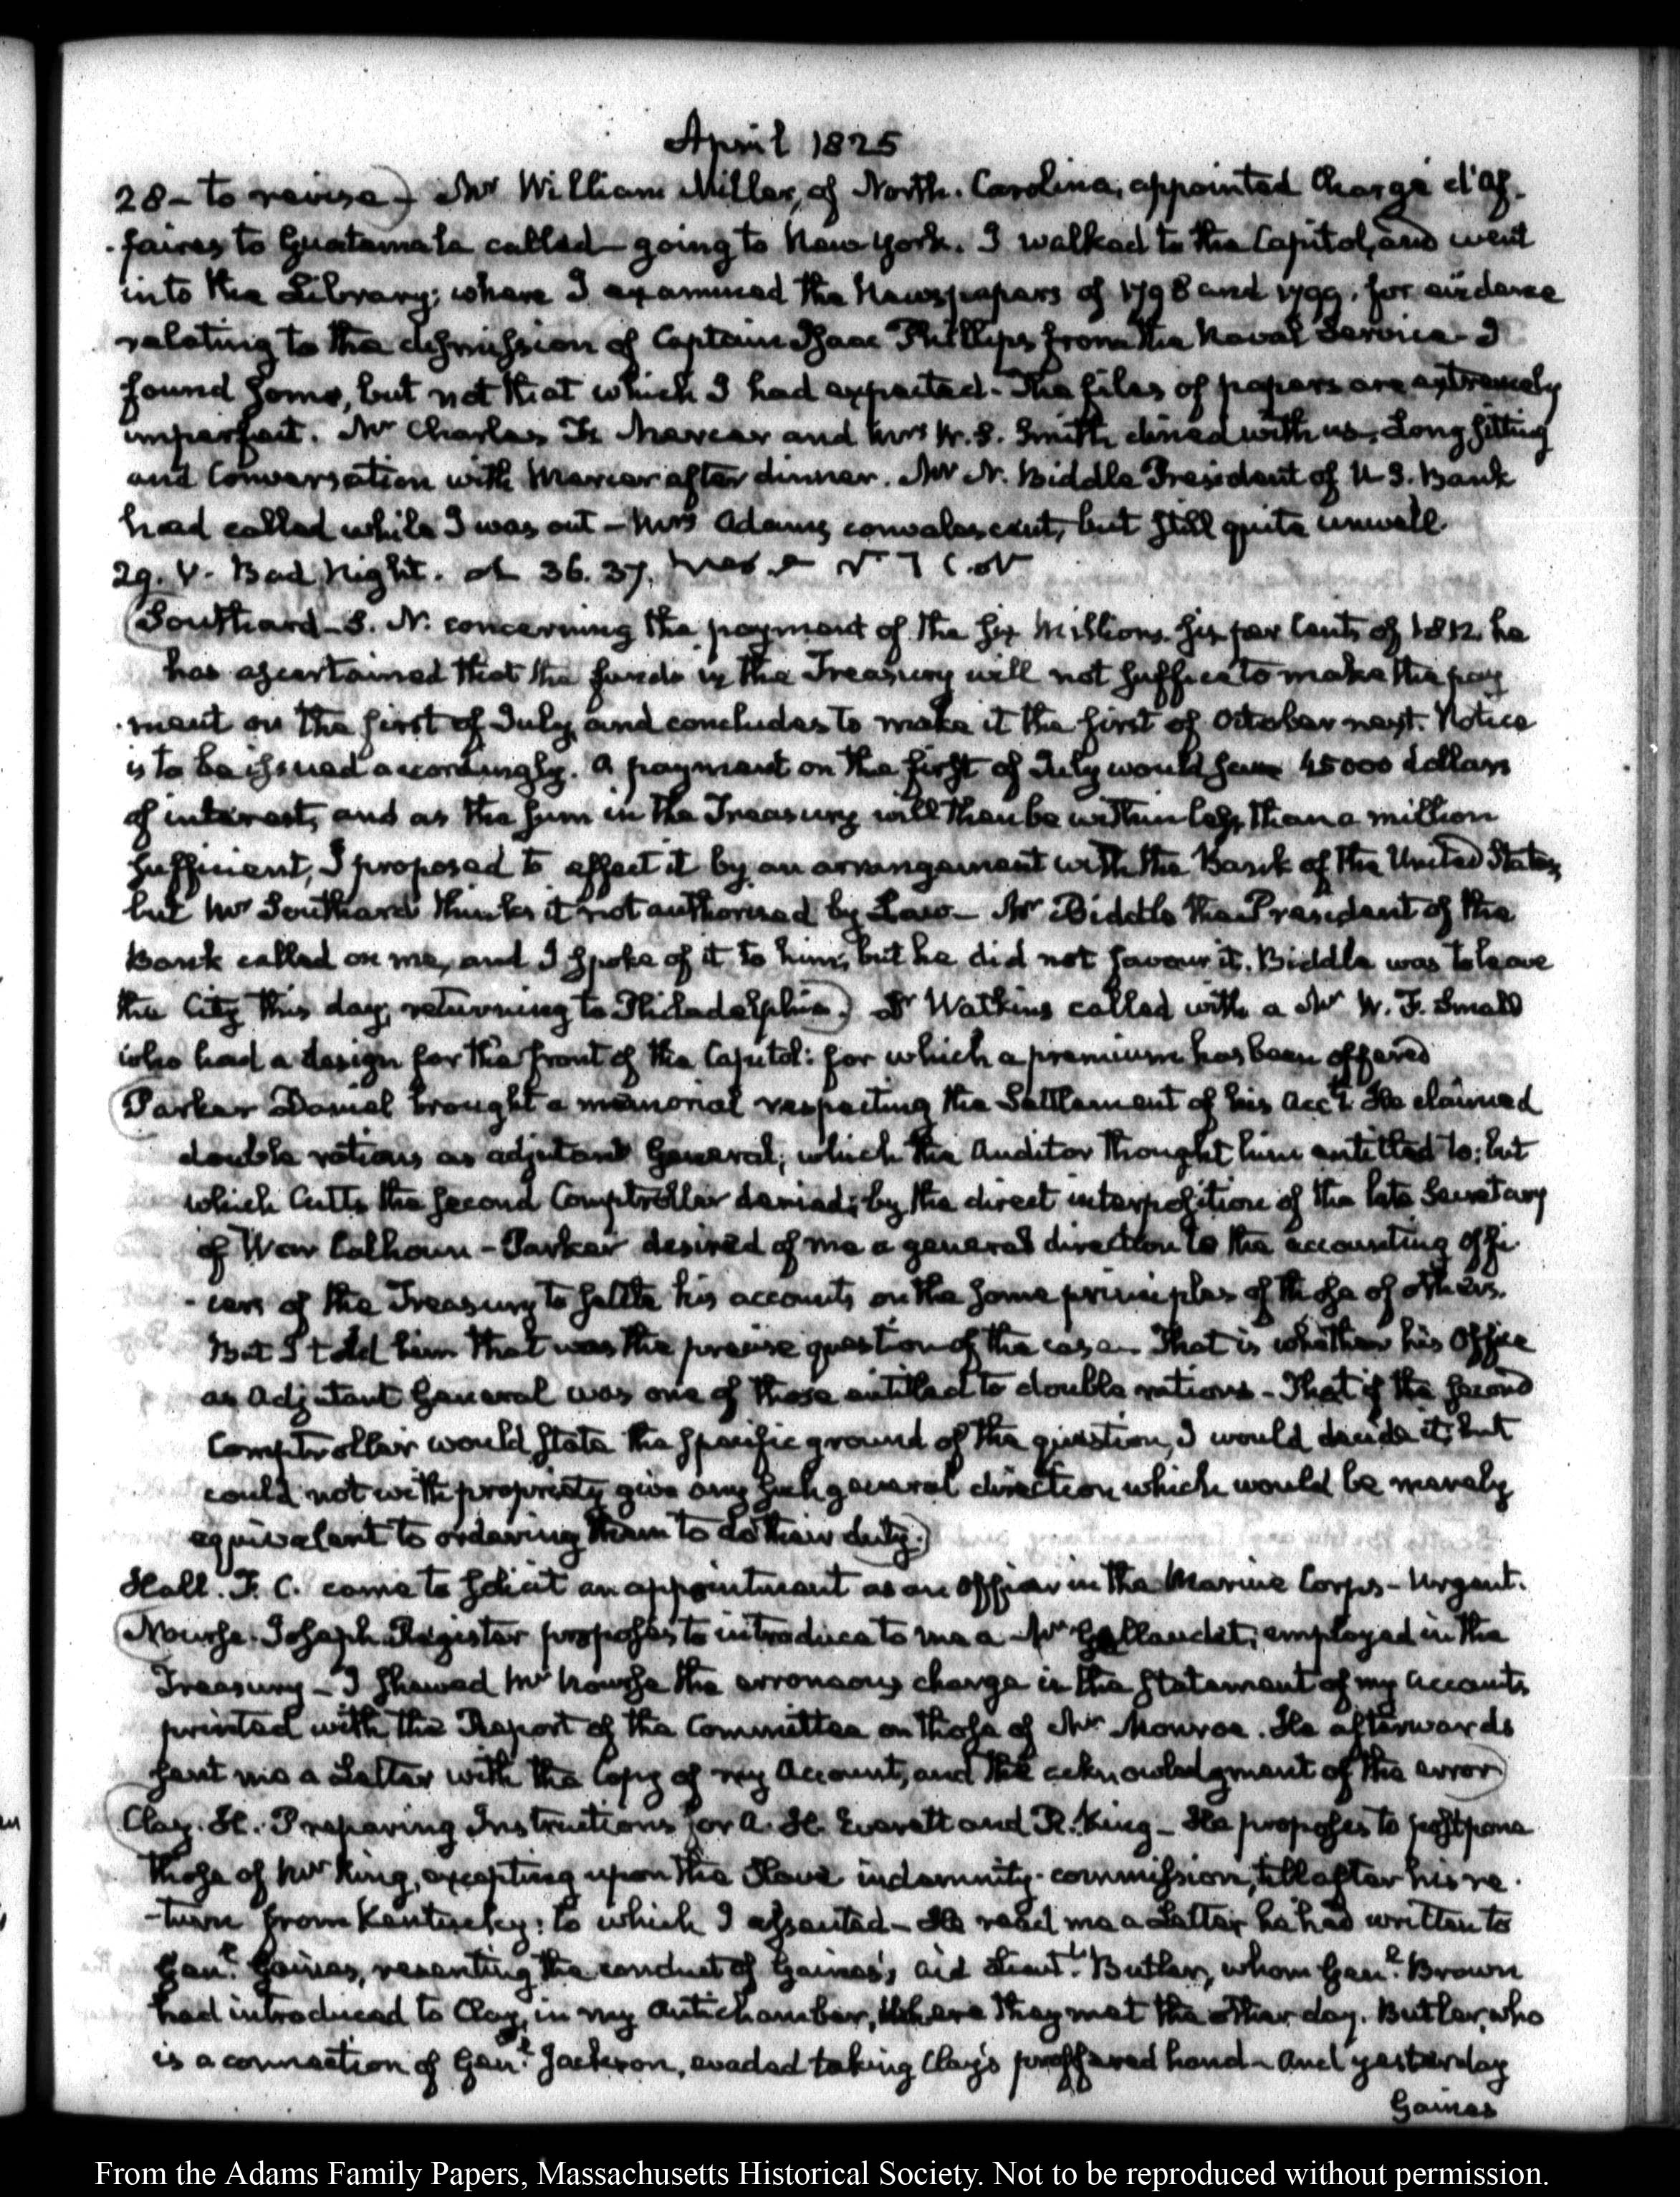 April 1825
28- to revise) Mr William Miller, of North-Carolina, appointed Chargé d'Af-
-faires to Guatamala called- going to New York. I walked to the Capitol, and went
into the Library; where I examined the Newspapers of 1798 and 1799. for evidence
relating to the dismission of Captain Isaac Phillips from the Naval Service- I
found some, but not that which I had expected- The files of papers are extremely
imperfect. Mr Charles F. Mercer and Mrs W. S. Smith dined with us- Long sitting
and Conversation with Mercer after dinner. Mr N. Biddle President of U.S. Bank
had called while I was out- Mrs Adams convalescent, but still quite unwell.
29. V. Bad Night. 36. 37.
(Southard- S. N. concerning the payment of the six Millions six per Cents of 1812. he
has ascertained that the funds in the Treasury will not suffice to make the pay
-ment on the first of July, and concludes to make it the first of October next. Notice
is to be issued accordingly. A payment on the first of July would save 45000 dollars
of interest, and as the sum in the Treasury will then be within less than a million
sufficient, I proposed to effect it by an arrangement with the Bank of the United States,
but Mr Southard thinks it not authorised by Law- Mr Biddle the President of the
Bank called on me, and I spoke of it to him, but he did not favour it. Biddle was to leave
the City this day, returning to Philadelphia.) Dr Watkins called with a Mr W. F. Small
who had a design for the front of the Capitol: for which a premium has been offered
(Parker Daniel brought a memorial respecting the Settlement of his Acct. He claimed
double rations as adjutant General; which the Auditor thought him entitled to; but
which Cutts the second Comptroller denied; by the direct interposition of the late Secretary
of War Calhoun- Parker desired of me a general direction to the accounting offi-
-cers of the Treasury to settle his accounts on the same principles of those of others.
But I told him that was the precise question of the case- That is whether his Office
as Adjutant General was one of those entitled to double rations- That if the second
Comptroller would state the specific ground of the question, I would decide it; but
could not with propriety give any such general direction which would be merely
equivalent to ordering them to do their duty.)
Hall. F. C. came to solicit an appointment as an officer in the Marine Corps- Urgent.
(Nourse. Joseph Register proposes to introduce to me a Mr Gallaudet, employed in the
Treasury- I shewed Mr Nourse the erroneous charge in the statement of my Accounts
printed with the Report of the Committee on those of Mr Monroe. He afterwards
sent me a Letter with the Copy of my Account, and the acknowledgment of the error)
(Clay. H. Preparing Instructions for A. H. Everett and R. King- He proposes to postpone
those of Mr King, excepting upon the Slave indemnity-commission, till after his re-
-turn from Kentucky: to which I assented- He read me a Letter he had written to
Genl. Gaines, resenting the conduct of Gaines's aid Lieutt. Butler, whom Genl. Brown
had introduced to Clay, in my Antichamber, where they met the other day. Butler, who
is a connection of Genl. Jackson, evaded taking Clay's proffered hand- And yesterday
Gaines
From the Adams Family Papers, Massachusetts Historical Society. Not to be reproduced without permission.